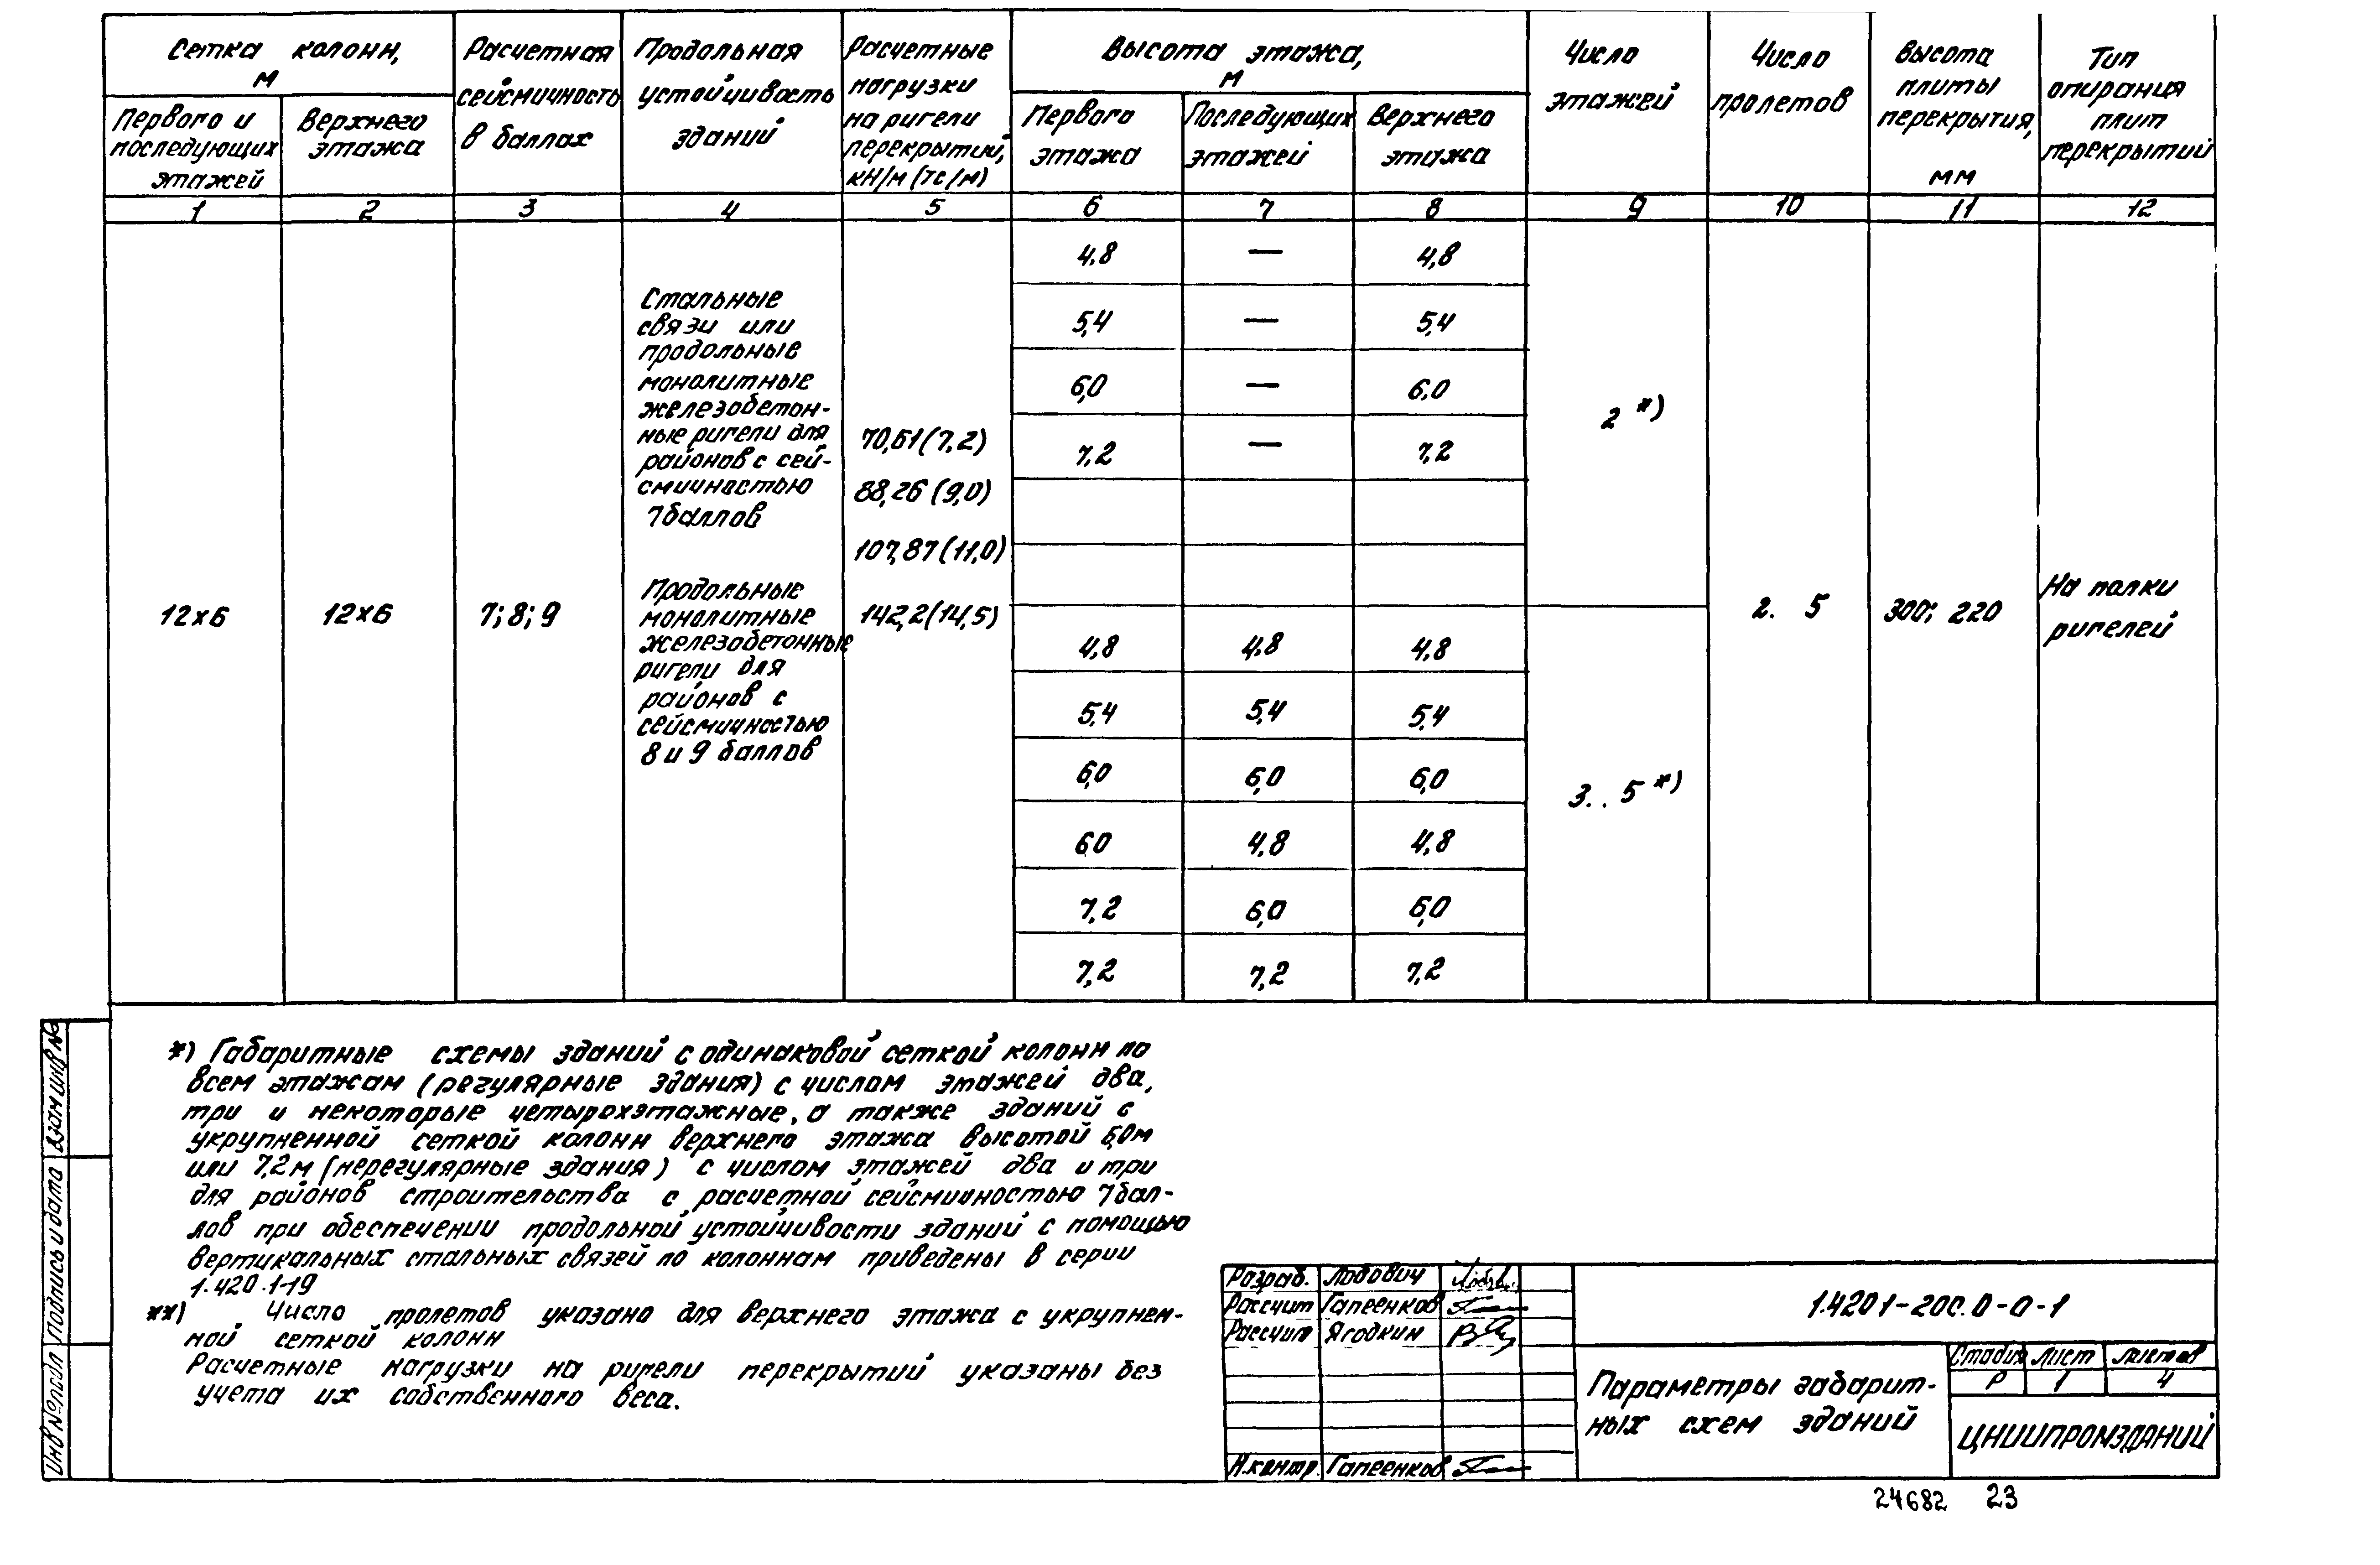 Сетка колонн,
м
Первого и
последующих
этажей
Верхнего
этажа
Расчетная
сейсмичность
в баллах
Продольная
устойчивость
зданий
Расчетные
нагрузки
на ригели
перекрытий,
кН/м (тс/м)
Высота этажа,
м
Первого
этажа
Последующих
этажей
Верхнего
этажа
Число
этажей
Число
пролетов
Высота
плиты
перекрытия,
мм
Тип
опирания
плит
перекрытий
1 2 3 4 5 6 7 8 9 10 11 12
12х6
12х6
7; 8; 9
Стальные
связи или
продольные
монолитные
железобетон-
ные ригели для
районов с сей-
смичностью
7 баллов
Продольные
монолитные
железобетонные
ригели для
районов с
сейсмичностью
8 и 9 баллов
70,61 (7,2)
88,26 (9,0)
107,87 (11,0)
142,2 (14,5)
4,8 — 4,8
5,4 — 5,4
6,0 — 6,0
7,2 — 7,2
4,8 4,8 4,8
5,4 5,4 5,4
6,0 6,0 6,0
6,0 4,8 4,8
7,2 6,0 6,0
7,2 7,2 7,2
2 *)
3.. 5 *)
2. 5
300; 220
На полки
ригелей
*) Габаритные схемы зданий с одинаковой сеткой колонн по
всем этажам (регулярные здания) с числом этажей два,
три и некоторые четырехэтажные, а также зданий с
укрупненной сеткой колонн верхнего этажа высотой 6,0м
или 7,2м (нерегулярные здания) с числом этажей два и три
для районов строительства с расчетной сейсмичностью 7 бал-
лов при обеспечении продольной устойчивости зданий с помощью
вертикальных стальных связей по колоннам приведены в серии
1.420.1-19
**) Число пролетов указано для верхнего этажа с укрупнен-
ной сеткой колонн
Расчетные нагрузки на ригели перекрытий указаны без
учета их собственного веса.
Взам инв №
Подпись и дата
Инв № подл
Разраб. Лодович
Рассчит Гапеенков
Рассчит Ягодкин
Н.контр. Гапеенков
1.420 1-20С.0-0-1
Параметры габарит-
ных схем зданий
Стадия Лист Листов
Р 1 4
ЦНИИПРОМЗДАНИЙ
24682 23